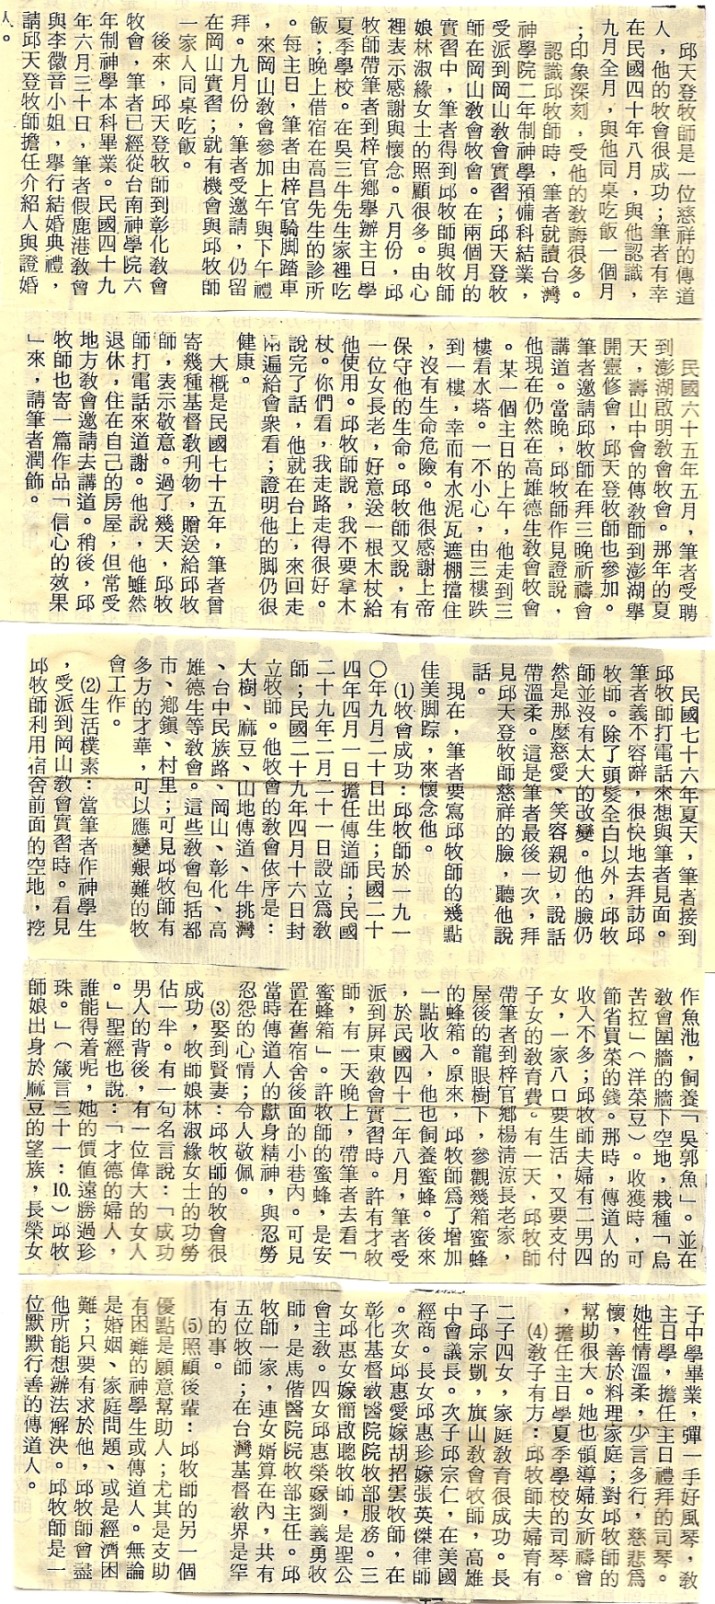 邱天登牧師是一位慈祥的傳道
人，他的牧會很成功；筆者有幸
在民國四十年八月，與他認識，
九月全月，與他同桌吃飯一個月
；印象深刻，受他的教誨很多。
認識邱牧師時，筆者就讀台灣
神學院二年制神學預備科結業，
受派到岡山教會實習；邱天登牧
師在岡山教會牧會。在兩個月的
實習中，筆者得到邱牧師與牧師
娘林淑緩女士的照顧很多。由心
裡表示感謝與懷念。八月份，邱
牧師帶筆者到梓官鄉舉辦主日學
夏季學校。在吳三牛先生家裡吃
飯；晚上借宿在高昌先生的診所
。每主日，筆者由梓官騎脚踏車
，來岡山教會參加上午與下午禮
拜。九月份，筆者受邀請，仍留
在岡山實習；就有機會與邱牧師
一家人同桌吃飯。
後來，邱天登牧師到彰化教會
牧會，筆者已經從台南神學院六
年制神學本科畢業。民國四十九
年六月三十日，筆者假鹿港教會
與李徽音小姐，舉行結婚典禮，
請邱天登牧師擔任介紹人與證婚
人。
民國六十五年五月，筆者受聘
到澎湖啟明教會牧會。那年的夏
天，壽山中會的傳教師到澎湖舉
開靈修會，邱天登牧師也參加。
筆者邀請邱牧師在拜三晚祈禱會
講道。當晚，邱牧師作見證說，
他現在仍然在高雄德生教會牧會
。某一個主日的上午，他走到三
樓看水塔。一不小心，由三樓跌
到一樓，幸而有水泥瓦遮棚擋住
，沒有生命危險。他很感謝上帝
保守他的生命。邱牧師又說，有
一位女長老，好意送一根木杖給
他使用。邱牧師說，我不要拿木
杖。你們看，我走路走得很好。
說完了話，他就在台上，來回走
兩遍給會衆看；證明他的脚仍很
健康。
大概是民國七十五年，筆者曾
寄幾種基督教刋物，贈送給邱牧
師，表示敬意。過了幾天，邱牧
師打電話來道謝。他說，他雖然
退休，住在自己的房屋；但常受
地方教會邀請去講道。稍後，邱
牧師也寄一篇作品「信心的效果
」來，請筆者潤飾。
民國七十六年夏天，筆者接到
邱牧師打電話來想與筆者見面。
筆者義不容辭，很快地去拜訪邱
牧師。除了頭髮全白以外，邱牧
師並沒有太大的改變。他的臉仍
然是那麼慈愛、笑容親切，說話
帶溫柔。這是筆者最後一次，拜
見邱天登牧師慈祥的臉，聽他說
話。
現在，筆者要寫邱牧師的幾點
佳美脚踪，來懷念他。
⑴牧會成功：邱牧師於一九一
〇年九月二十日出生；民國二十
四年四月一日擔任傳道師；民國
二十九年二月二十一日設立爲教
師；民國二十九年四月十六日封
立牧師。他牧會的教會依序是：
大樹、麻豆、山地傳道、牛挑灣
、台中民族路、岡山、彰化、高
雄德生等教會。這些教會包括都
市、鄉鎭、村里；可見邱牧師有
多方的才華，可以應變艱難的牧
會工作。
⑵生活樸素：當筆者作神學生
，受派到岡山教會實習時。看見
邱牧師利用宿舍前面的空地，挖
作魚池，飼養「吳郭魚」。並在
教會圍牆的牆下空地，栽種「烏
苦拉」（洋菜豆）。收獲時，可
節省買菜的錢。那時，傳道人的
收入不多；邱牧師夫婦有二男四
女，一家八口要生活，又要支付
子女的教育費。有一天，邱牧師
帶筆者到梓官鄉楊清涼長老家，
屋後的龍眼樹下，參觀幾箱蜜蜂
的蜂箱。原來，邱牧師爲了增加
一點收入，他也飼養蜜蜂。後來
，於民國四十二年八月，筆者受
派到屏東教會實習時。許有才牧
師，有一天晚上，帶筆者去看「
蜜蜂箱」。許牧師的蜜蜂，是安
置在舊宿舍後面的小巷內。可見
當時傳道人的獻身精神，與忍勞
忍怨的心情；令人敬佩。
⑶娶到賢妻：邱牧師的牧會很
成功，牧師娘林淑緩女士的功勞
佔一半。有一句名言說：「成功
男人的背後，有一位偉大的女人
。」聖經也說：「才德的婦人，
誰能得着呢，她的價值遠勝過珍
珠。」（箴言三十一：10.）邱牧
師娘出身於麻豆的望族，長榮女
子中學畢業，彈一手好風琴，教
主日學，擔任主日禮拜的司琴。
她性情溫柔，少言多行，慈悲爲
懷，善於料理家庭；對邱牧師的
幫助很大。她也領導婦女祈禱會
，擔任主日學夏季學校的司琴。
⑷教子有方：邱牧師夫婦育有
二子四女，家庭教育很成功。長
子邱宗凱，旗山教會牧師，高雄
中會議長。次子邱宗仁，在美國
經商。長女邱惠珍嫁張英傑律師
。次女邱惠愛嫁胡招雲牧師，在
彰化基督教醫院院牧部服務。三
女邱惠女嫁簡啟聰牧師，是聖公
會主教。四女邱惠榮嫁劉義勇牧
師，是馬偕醫院院牧部主任。邱
牧師一家，連女婿算在內，共有
五位牧師；在台灣基督教界是罕
有的事。
⑸照顧後輩：邱牧師的另一個
優點是願意幫助人；尤其是支助
有困難的神學生或傳道人。無論
是婚姻、家庭問題、或是經濟困
難；只要有求於他，邱牧師會盡
他所能想辦法解決。邱牧師是一
位默默行善的傳道人。